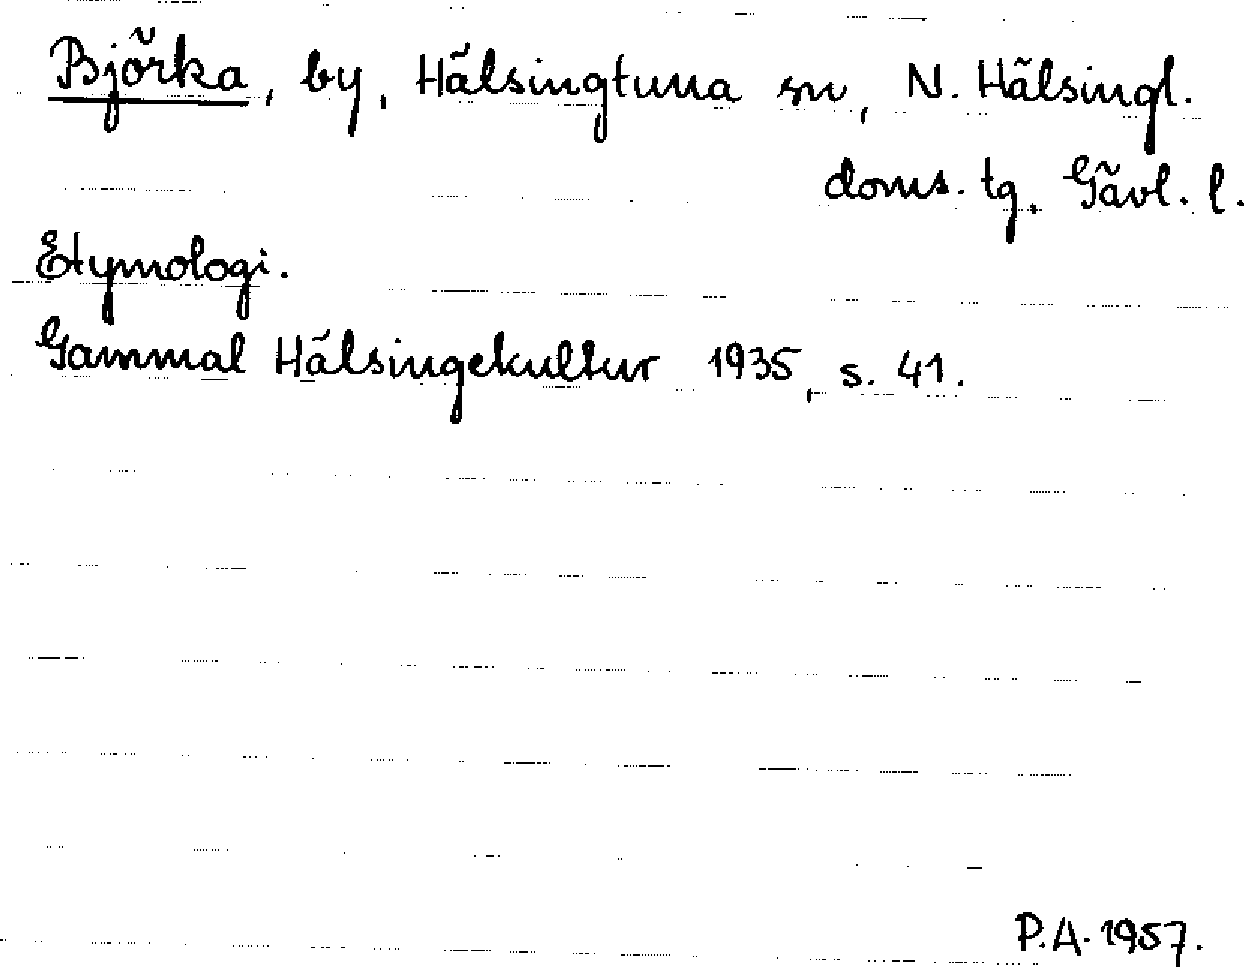 Björka, by, Hälsingtuna sn, N. Hälsingl.
doms. tg. Gävl. l.
Etymologi.
Gammal Hälsingekultur 1935, s. 41.
P.A. 1957.